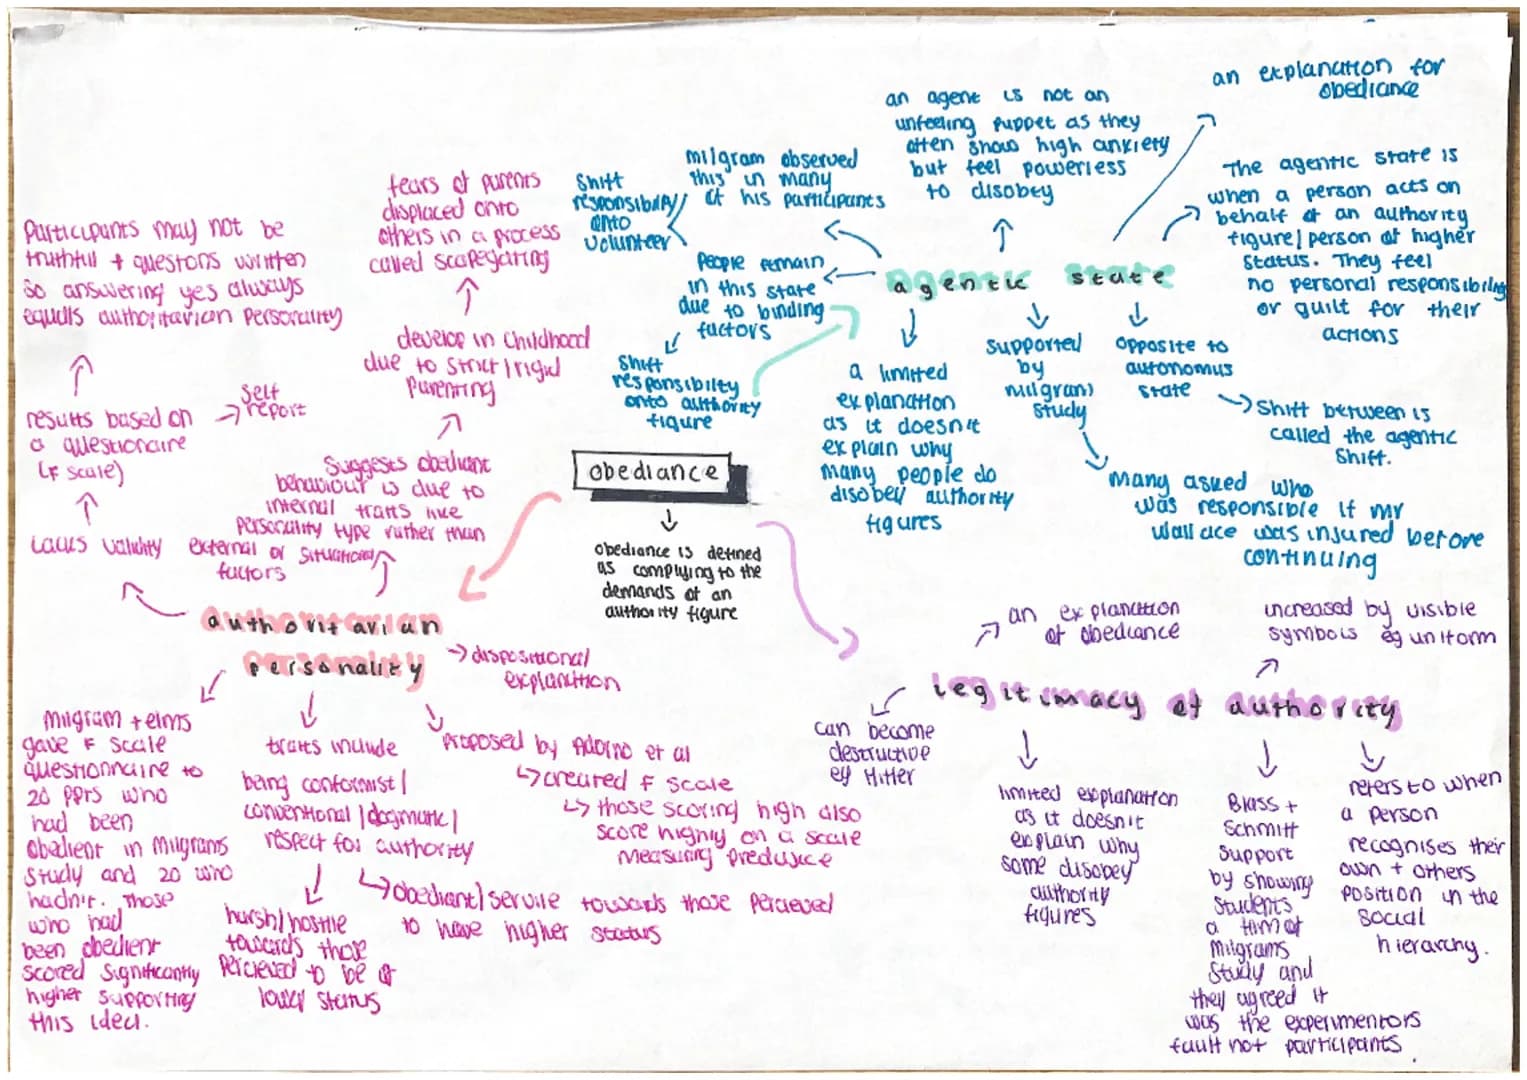 obediance
obediance is defined
as complying to the
demands of an
authority figure
agentic state
an explanation for
obediance
The agentic state is
when a person acts on
behalf of an authority
figure/person of higher
status. They feel
no personal responsibility
or guilt for their
actions
an agent is not an
unfeeling puppet as they
often show high anxiety
but feel powerless
to disobey
milgram observed
this in many
of his participants
People remain
in this state
due to binding
factors
Shift
responsibility
onto
volunteer
Shift
responsibilty
onto authority
figure
a limited
explanation
as it doesn't
explain why
many people do
disobey authority
figures
Supported
by
milgrams
study
Many asked who
was responsible if mr
wallace was injured before
continuing
opposite to
autonomus
state
Shift between is
called the agentic
Shift.
authoritarian
personality
dispositional
explanation
Lacks validity
results based on
a questionaire
(F scale)
self
report
Participants may not be
truthful + questons written
so answering yes always
equals authoritarian personality
Suggests obediant
behaviour is due to
internal traits like
personality type rather than
external or situational
factors
develop in childhood
due to strict/rigid
parenting
fears of parents
displaced onto
others in a process
called scapegoating
Milgram + elms
gave F scale
questionnaire to
20 ppts who
had been
obedient in Milgrams
study and 20 who
hadn't. Those
who had
been obedient
scored significantly
higher supporting
this idea.
traits include
being conformist/
conventional/dogmatic/
respect for authority
harsh/hostile
towards those
percieved to be of
lower status
obediant/servile towards those percieved
to have higher status
Proposed by Adorno et al
created F scale
those scoring high also
score highly on a scale
measuring predujice
legitimacy of authority
an explanation
of obediance
increased by visible
symbols eg uniform
can become
destructive
eg Hitler
limited explanation
as it doesn't
explain why
some disobey
authority
figures
Blass +
Schmitt
support
by showing
students
a film of
Milgrams
study and
they agreed it
was the experimentors
fault not participants
refers to when
a person
recognises their
own + others
position in the
social
hierarchy.